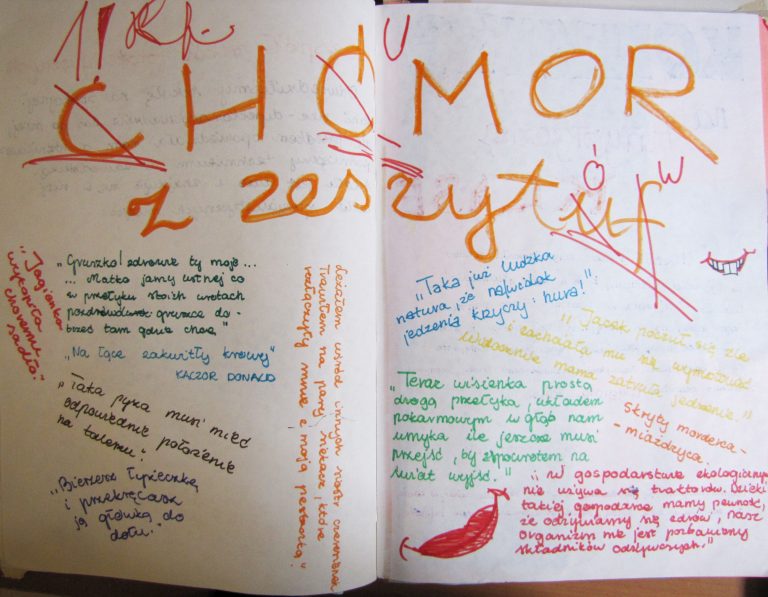 CHOMOR
U
z zeszytuf
Ó W
„Jagienka
wytopiła
choremu
sadło."
„Gruszko! zdrowie ty moje...
... Matko jamy ustnej co
w przełyku stoisz wrotach
gruszce do-
trzeć tam gdzie chcą"
„Na łące zakwitły krowy"
KACZOR DONALD
„Taka pyza musi mieć
odpowiednie położenie
na talerzu."
„Bierzesz łyżeczkę
i przekręcasz
ją główką do
dołu."
Leżałem wśród innych
Trzasłem na parę miesięcy, które
rozłączyły mnie z moją pestką."
„Taka już ludzka
natura, że na widok
jedzenia krzyczy: hura!"
„Jacek poczuł się źle
i zachciało mu się wymiotować
Widocznie mama zatruła jedzenie."
„Teraz wisienka prostą
drogą przełyka, układem
pokarmowym w głąb nam
umyka ile jeszcze musi
przejść, by z powrotem na
świat wyjść."
Skryty morderca -
- miażdżyca.
„W gospodarstwie ekologicznym
nie używa się traktorów. Dzięki
takiej gospodarce mamy pewność,
że odżywiamy się zdrowo, nasz
organizm nie jest pozbawiony
składników odżywczych."